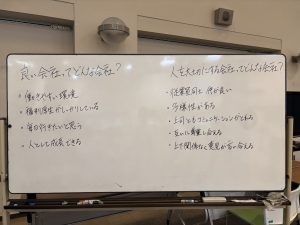 良い会社ってどんな会社?
・働きやすい環境
・福利厚生がしっかりしている
・毎日行きたいと思う
・人として成長できる
人を大切にする会社ってどんな会社?
・従業員同士 仲が良い
・多様性がある
・上司ともコミュニケーションがとれる
・互いに尊重し合える
・上下関係なく意見が言い合える